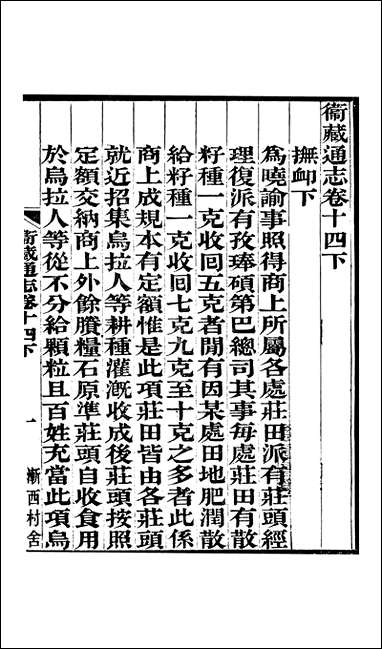 衞藏通志卷十四下
撫卹下
爲曉諭事照得商上所屬各處莊田派有莊頭經
理復派有孜琫碩第巴總司其事每處莊田有散
籽種一克收囘五克者閒有因某處田地肥潤散
給籽種一克收囘七克九克至十克之多者此係
商上成規本有定額惟是此項莊田皆由各莊頭
就近招集烏拉人等耕種灌漑收成後莊頭按照
定額交納商上外餘賸糧石原準莊頭自收食用
於烏拉人等從不分給顆粒且百姓充當此項烏
衞藏通志卷十四下
一
漸西村舍